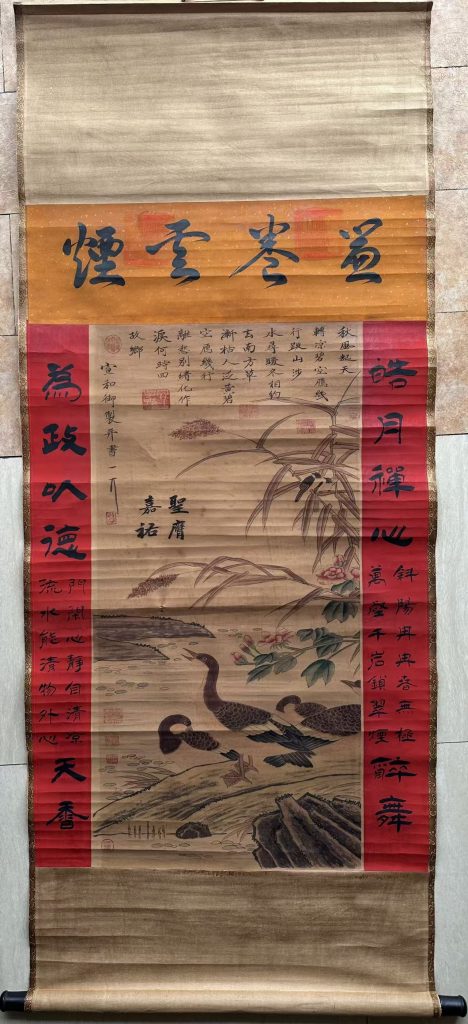 卷云煙
皓月禪心
斜陽冉冉春無極
萬壑千岩鎖翠煙
醉舞
秋風起天
轉凉碧空雁綫
行跋山涉
水尋暖冬相約
去南方草
漸枯人泛黃碧
空雁綫行
離愁別緒化作
淚何時回
故鄉
宣和御製并書
聖膺
嘉祐
為政以德
門閑心靜自清凉
流水能清物外心
天香